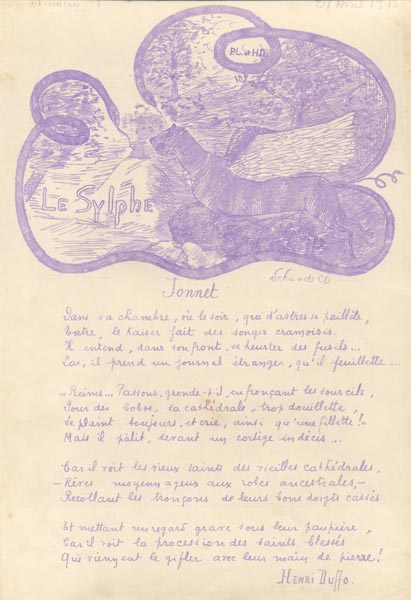 PL. et H.D
Le Sylphe
Sonnet
Dans sa chambre, où le soir, gris d'astres se pailléte,
Entre, le Kaiser fait des songes cramoisis.
Il entend, dans son front, se heurter des fusils...
Las, il prend un journal étranger, qu'il feuillette...
"Reims... Passons, gronde-t-il, en fronçant les sourcils,
Pour des bobos, sa cathédrale, trop douillette,
Se plaint toujours, et crie, ainsi qu'une fillette!"
Mais il pâlit, devant un cortège indécis...
Car il voit les vieux saints des vieilles cathédrales,
- Rêves moyennageux aux robes ancestrales, -
Recollant les tronçons de leurs bons doigts cassés
Et mettant un regard grave sous leur paupière,
Car il voit la procession des saints blessés
Qui viennent le gifler avec leur main de pierre!
Henri Duffo.